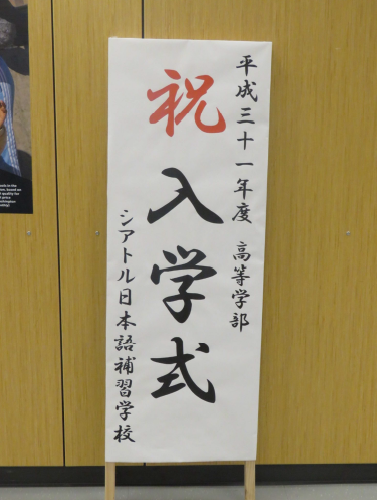 平成三十一年度 高等学部
祝 入学式
シアトル日本語補習学校